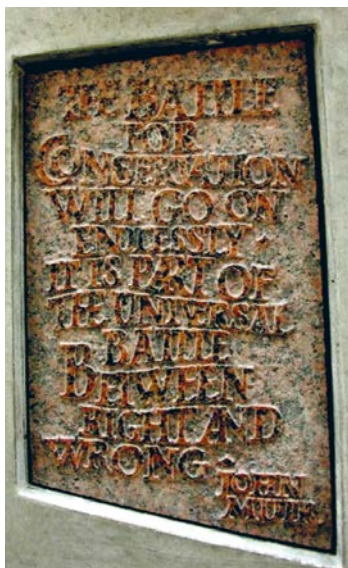 THE BATTLE
FOR
CONSERVATION
WILL GO ON
ENDLESSLY ·
IT IS PART OF
THE UNIVERSAL
BATTLE
BETWEEN
RIGHT AND
WRONG ·
JOHN
MUIR